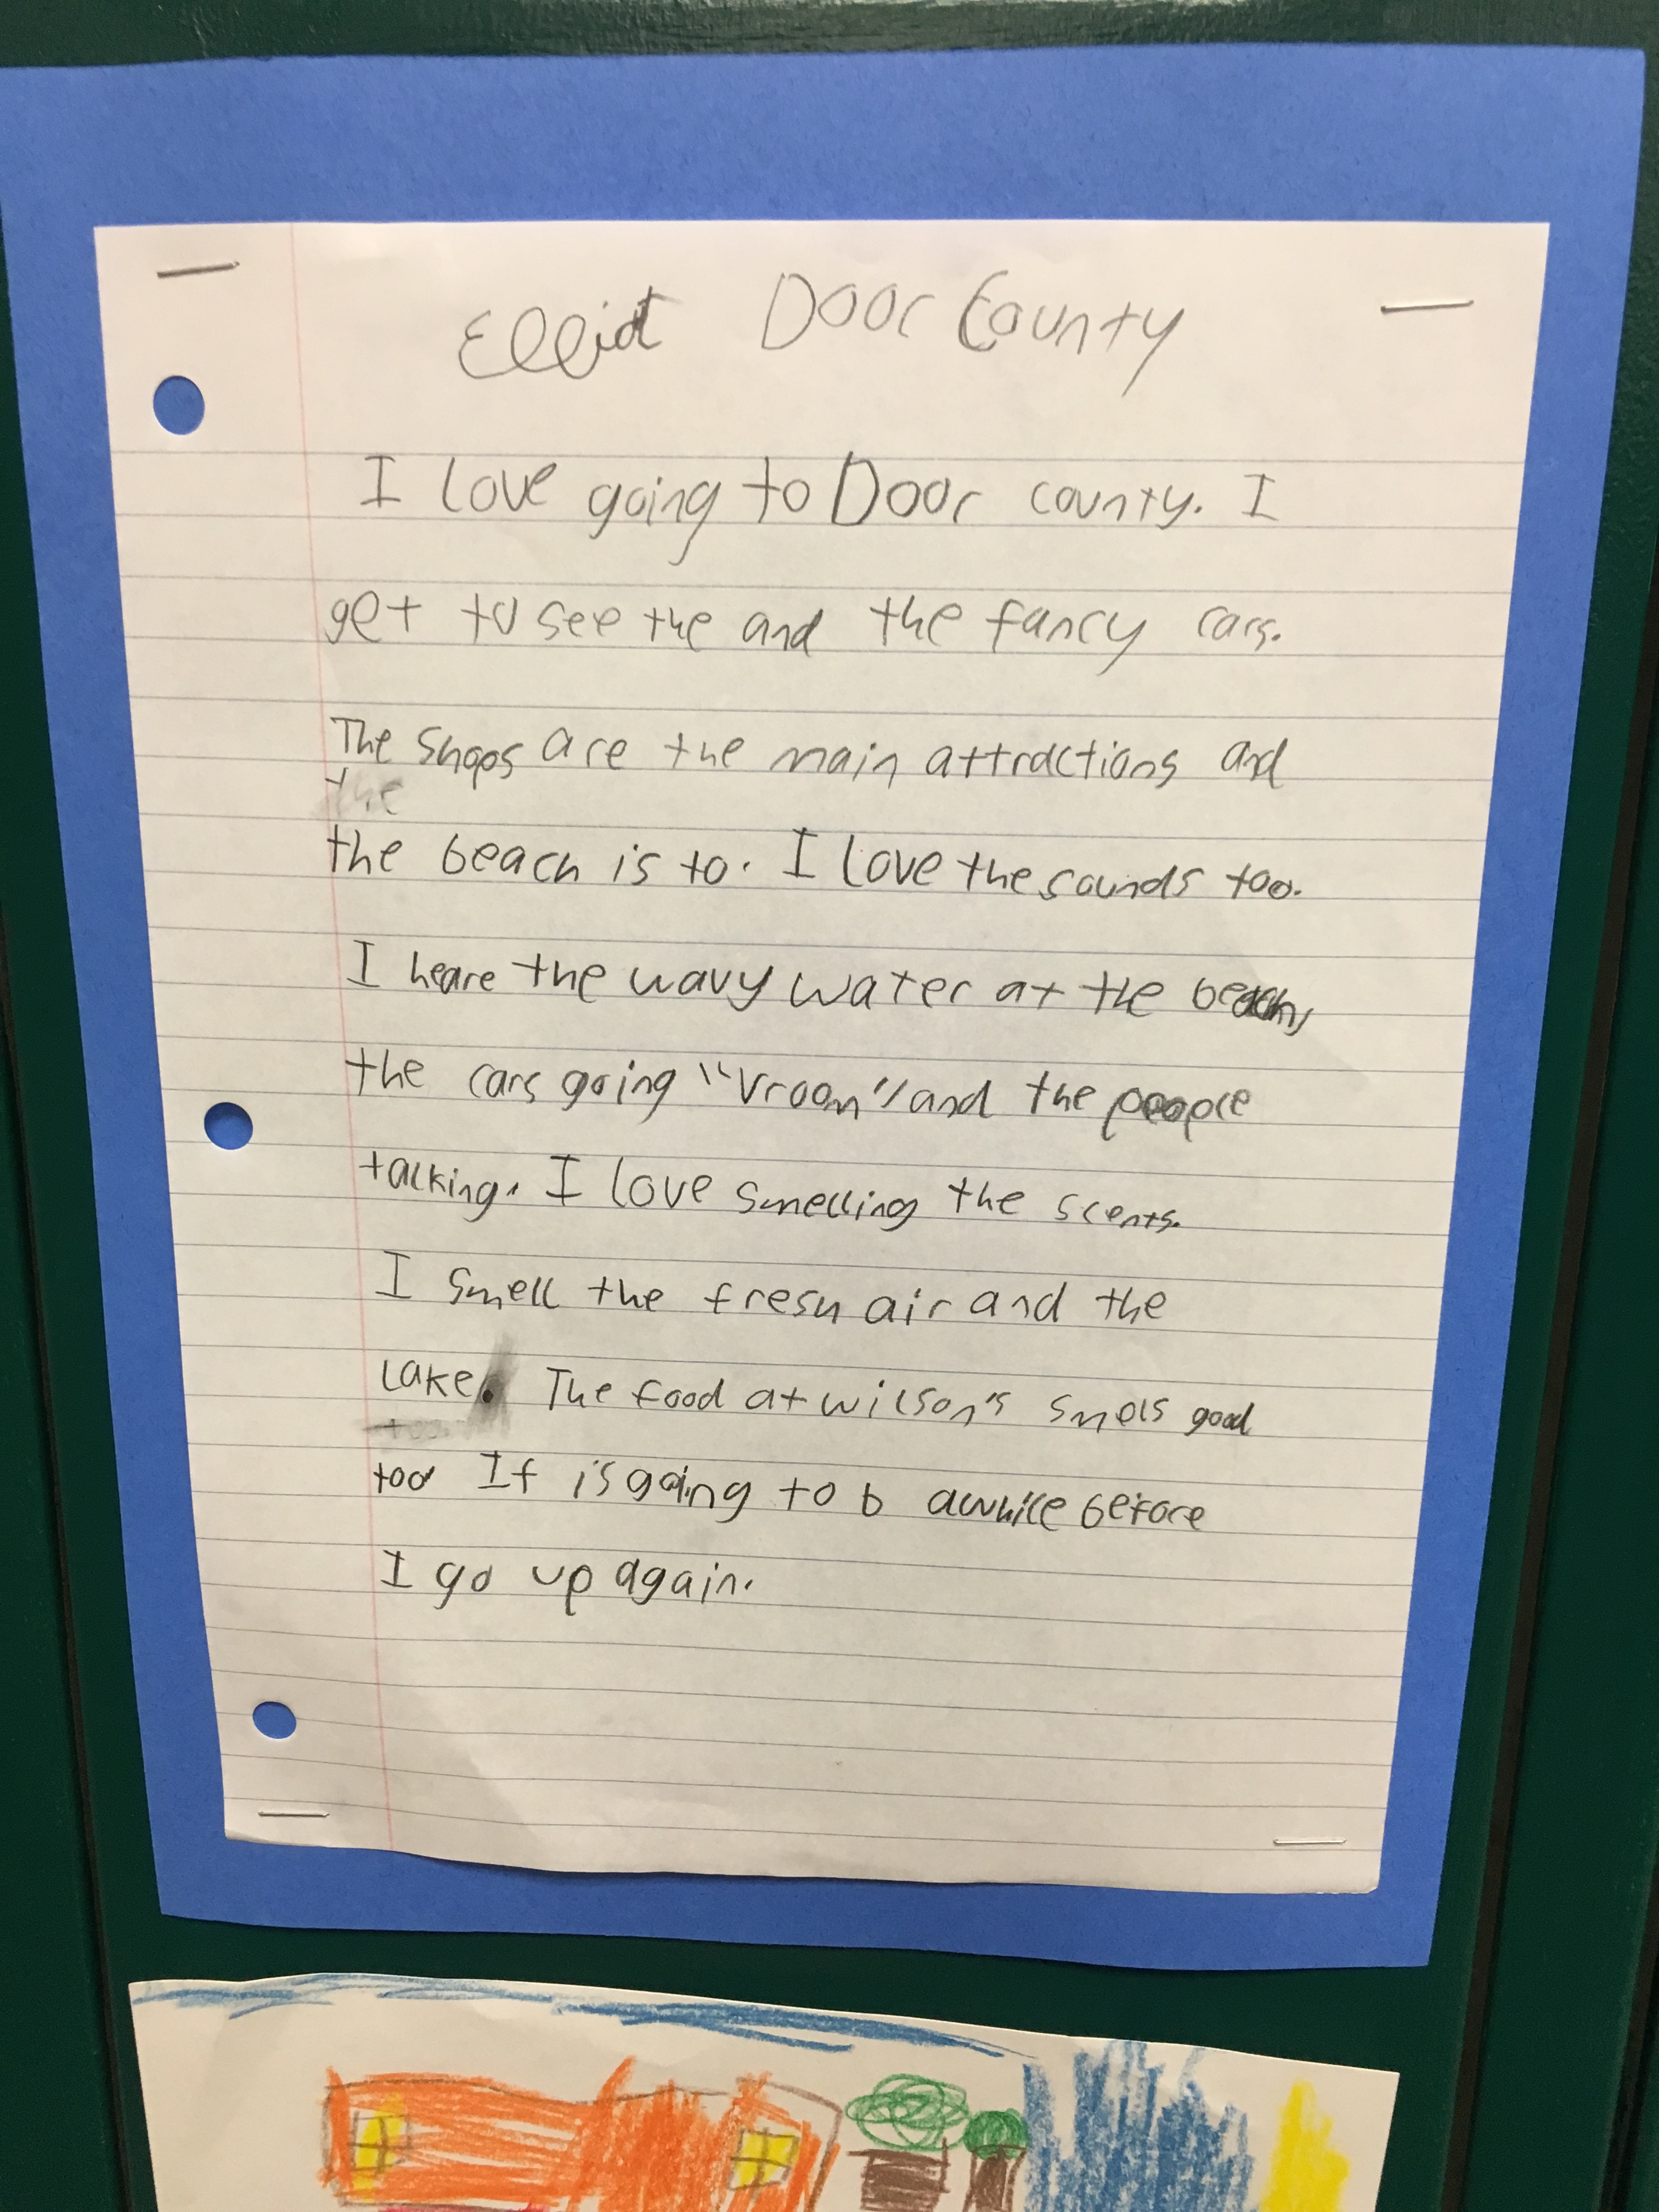 Elliot Door County
I love going to Door county. I
get to see the and the fancy cars.
The shops are the main attractions and
the
the beach is to. I love the sounds too.
I heare the wavy water at the beach,
the cars going "Vroom" and the people
talking. I love smelling the scents.
I smell the fresh air and the
lake. The food at wilson's smels good
too.
too If is going to b awhile before
I go up again.